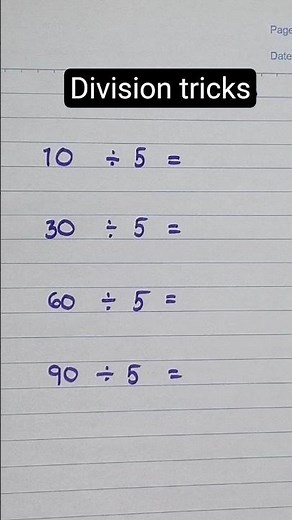 Page
Date
Division tricks
10 ÷ 5 =
30 ÷ 5 =
60 ÷ 5 =
90 ÷ 5 =